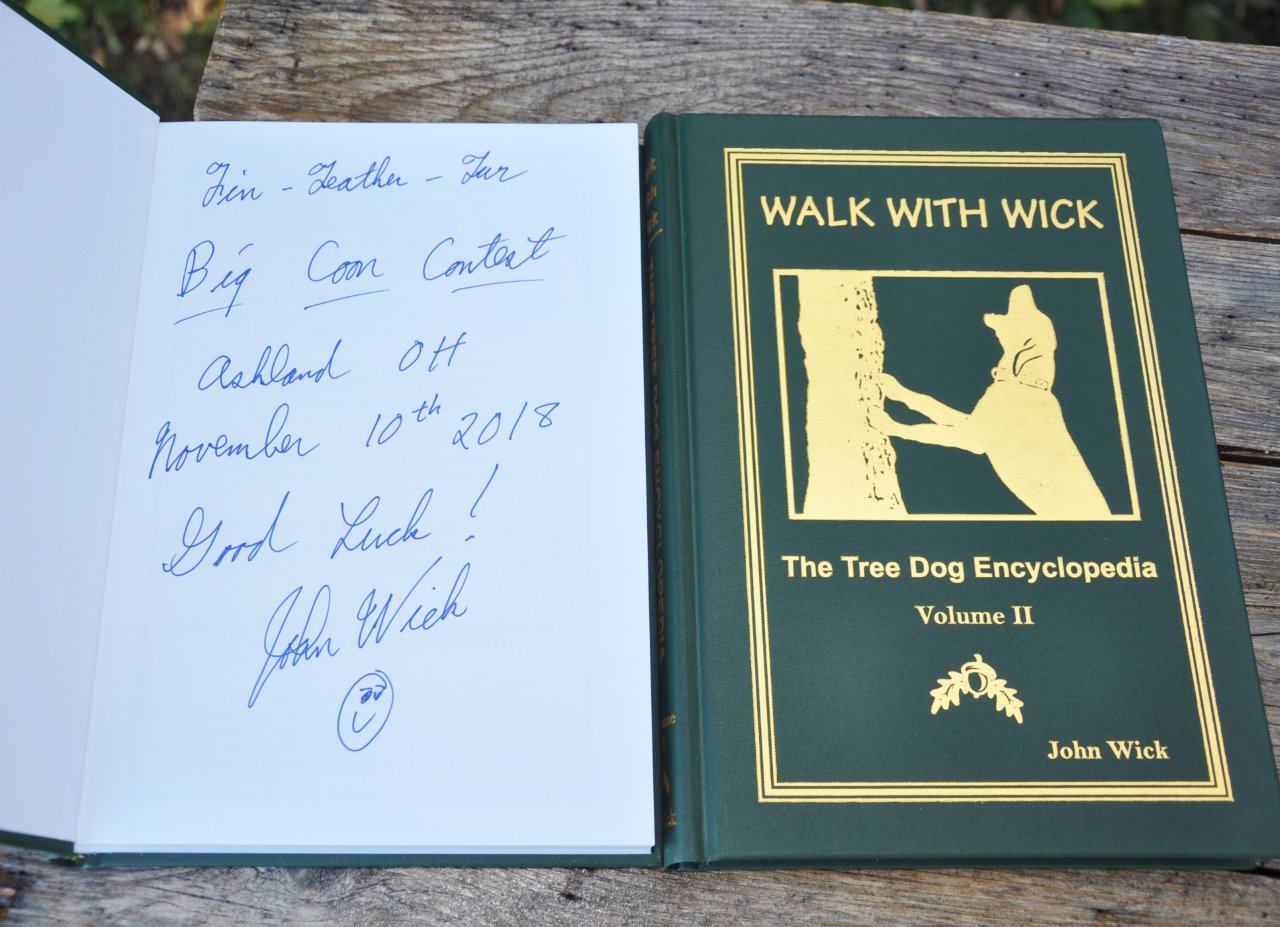 Fin - Feather - Fur
Big Coon Contest
Ashland OH
November 10th 2018
Good Luck!
John Wick
THE TREE DOG ENCYCLOPEDIA
WALK WITH WICK
The Tree Dog Encyclopedia
Volume II
John Wick